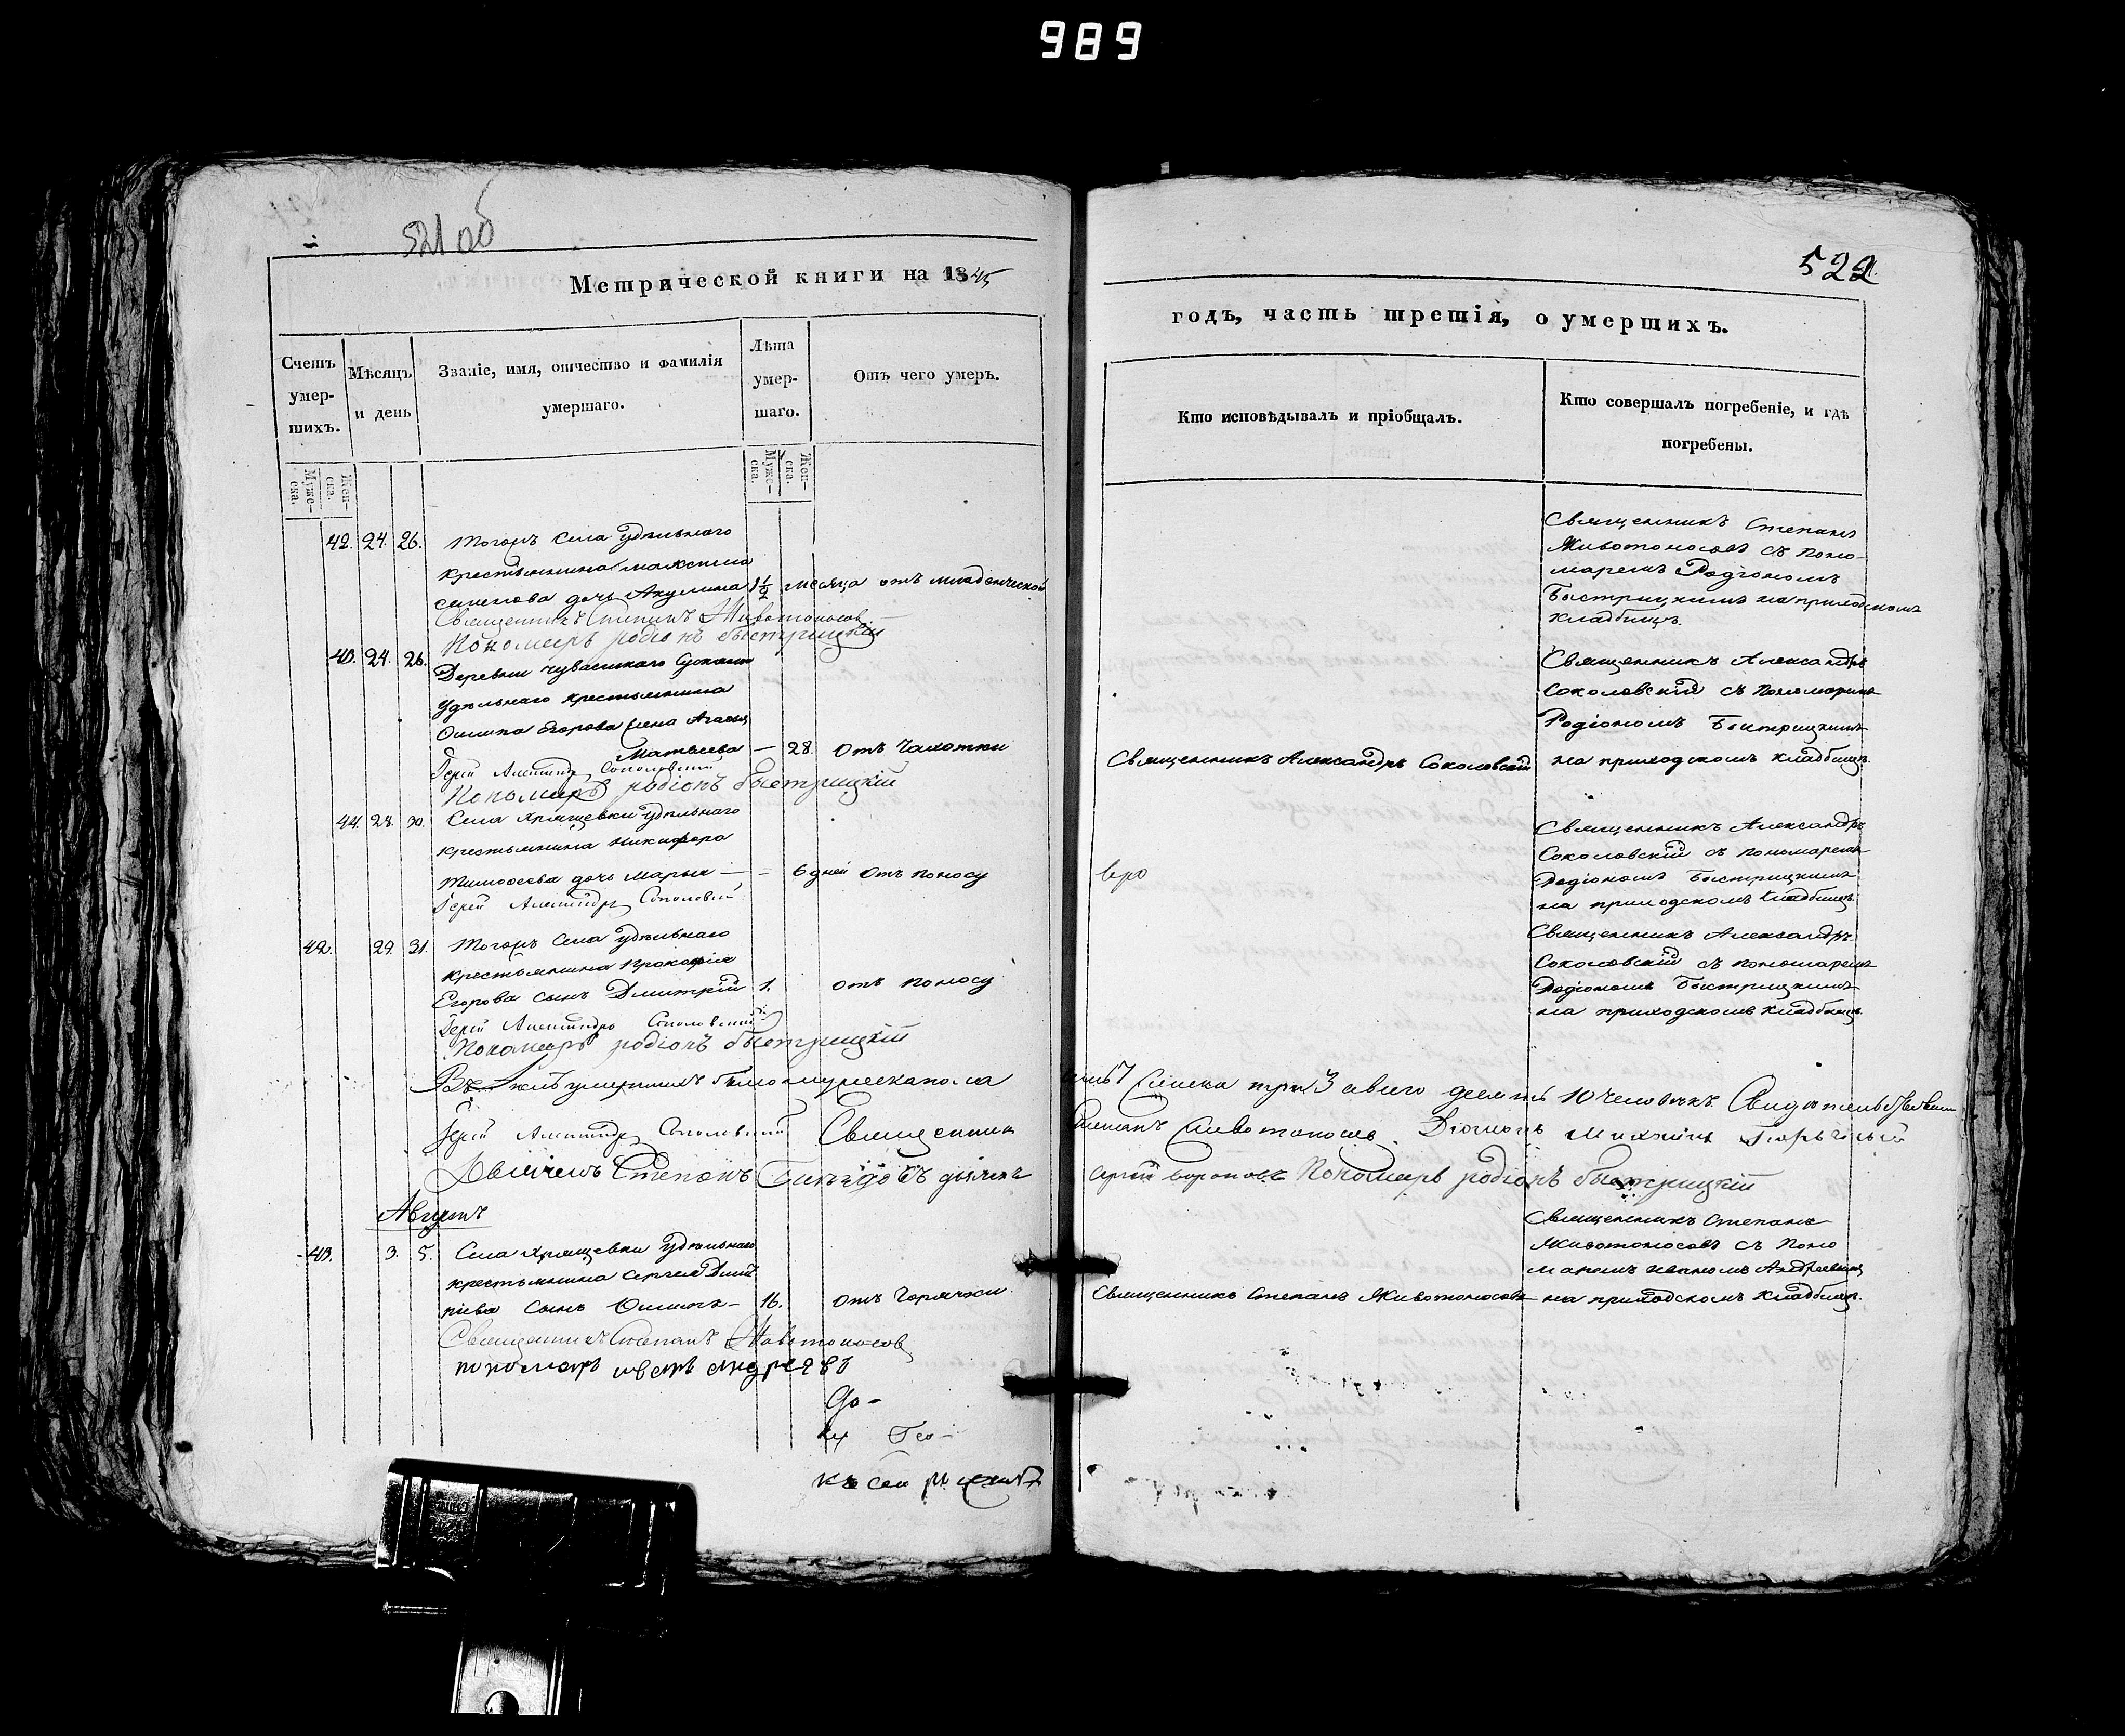 989
521 об
522
Метрической книги на 1845
годъ, часть третія, о умерших ъ.
Счетъ умер-шихъ.
Мѣсяцъ и день
Званіе, имя, отчество и фамилія
умершаго.
Лѣта умер-шаго.
Отъ чего умеръ.
Кто исповѣдывалъ и пріобщалъ.
Кто совершалъ погребеніе, и гдѣ
погребены.
Муже-ска.
Жен-ска.
Муже-ска.
Жен-ска.
42. 24. 26. Тогожъ села удѣльнаго
крестьянина Максима
дочь Акулина 1½ месяца отъ младенческой
Священникъ Степанъ Животоносов
Пономарь родіонъ быстрицкій
Священникъ Степанъ
Животоносовъ съ поно-
маремъ Родіономъ
Быстрицкимъ на приходскомъ
кладбищѣ.
43. 24. 26. Деревни Чувашскаго
удѣльнаго крестьянина
Филипа Егорова жена
Матвѣева — 28. отъ чахотки
Іерей Александръ Соколовскій
Пономарь родіонъ быстрицкій
Священникъ Александръ Соколовскій
Священникъ Александръ
Соколовскій съ пономаремъ
Родіономъ Быстрицкимъ
на приходскомъ кладбищѣ.
44. 28. 30. Села Хрящевки удѣльнаго
крестьянина Никифора
Тимофеева дочь Марья — 6 дней отъ поносу
Іерей Александръ Соколовскій
Священникъ Александръ
Соколовскій съ пономаремъ
Родіономъ Быстрицкимъ
на приходскомъ кладбищѣ.
42. 29. 31. Тогожъ села удѣльнаго
крестьянина Прокофія
Егорова сынъ Дмитрій 1. отъ поносу
Іерей Александръ Соколовскій
Пономарь родіонъ быстрицкій
Священникъ Александръ
Соколовскій съ пономаремъ
Родіономъ Быстрицкимъ
на приходскомъ кладбищѣ.
умершихъ было мужеска пола
три 3 авсего десять 10 человѣкъ.
Іерей Александръ Соколовскій Священникъ
Степанъ Животоносовъ. Діаконъ
Степанъ дьячекъ
Пономарь родіонъ быстрицкій
Августъ
43. 3. 5. Села Хрящевки удѣльнаго
крестьянина Сергея Дмит
ріева сынъ Филипъ — 16. отъ горячки.
Священникъ Степанъ Животоносов
пономарь иванъ андреевъ
Священникъ Степанъ Животоносовъ
Священникъ Степанъ
Животоносовъ съ поно
маремъ Иваномъ Андреевымъ
на приходскомъ кладбищѣ.